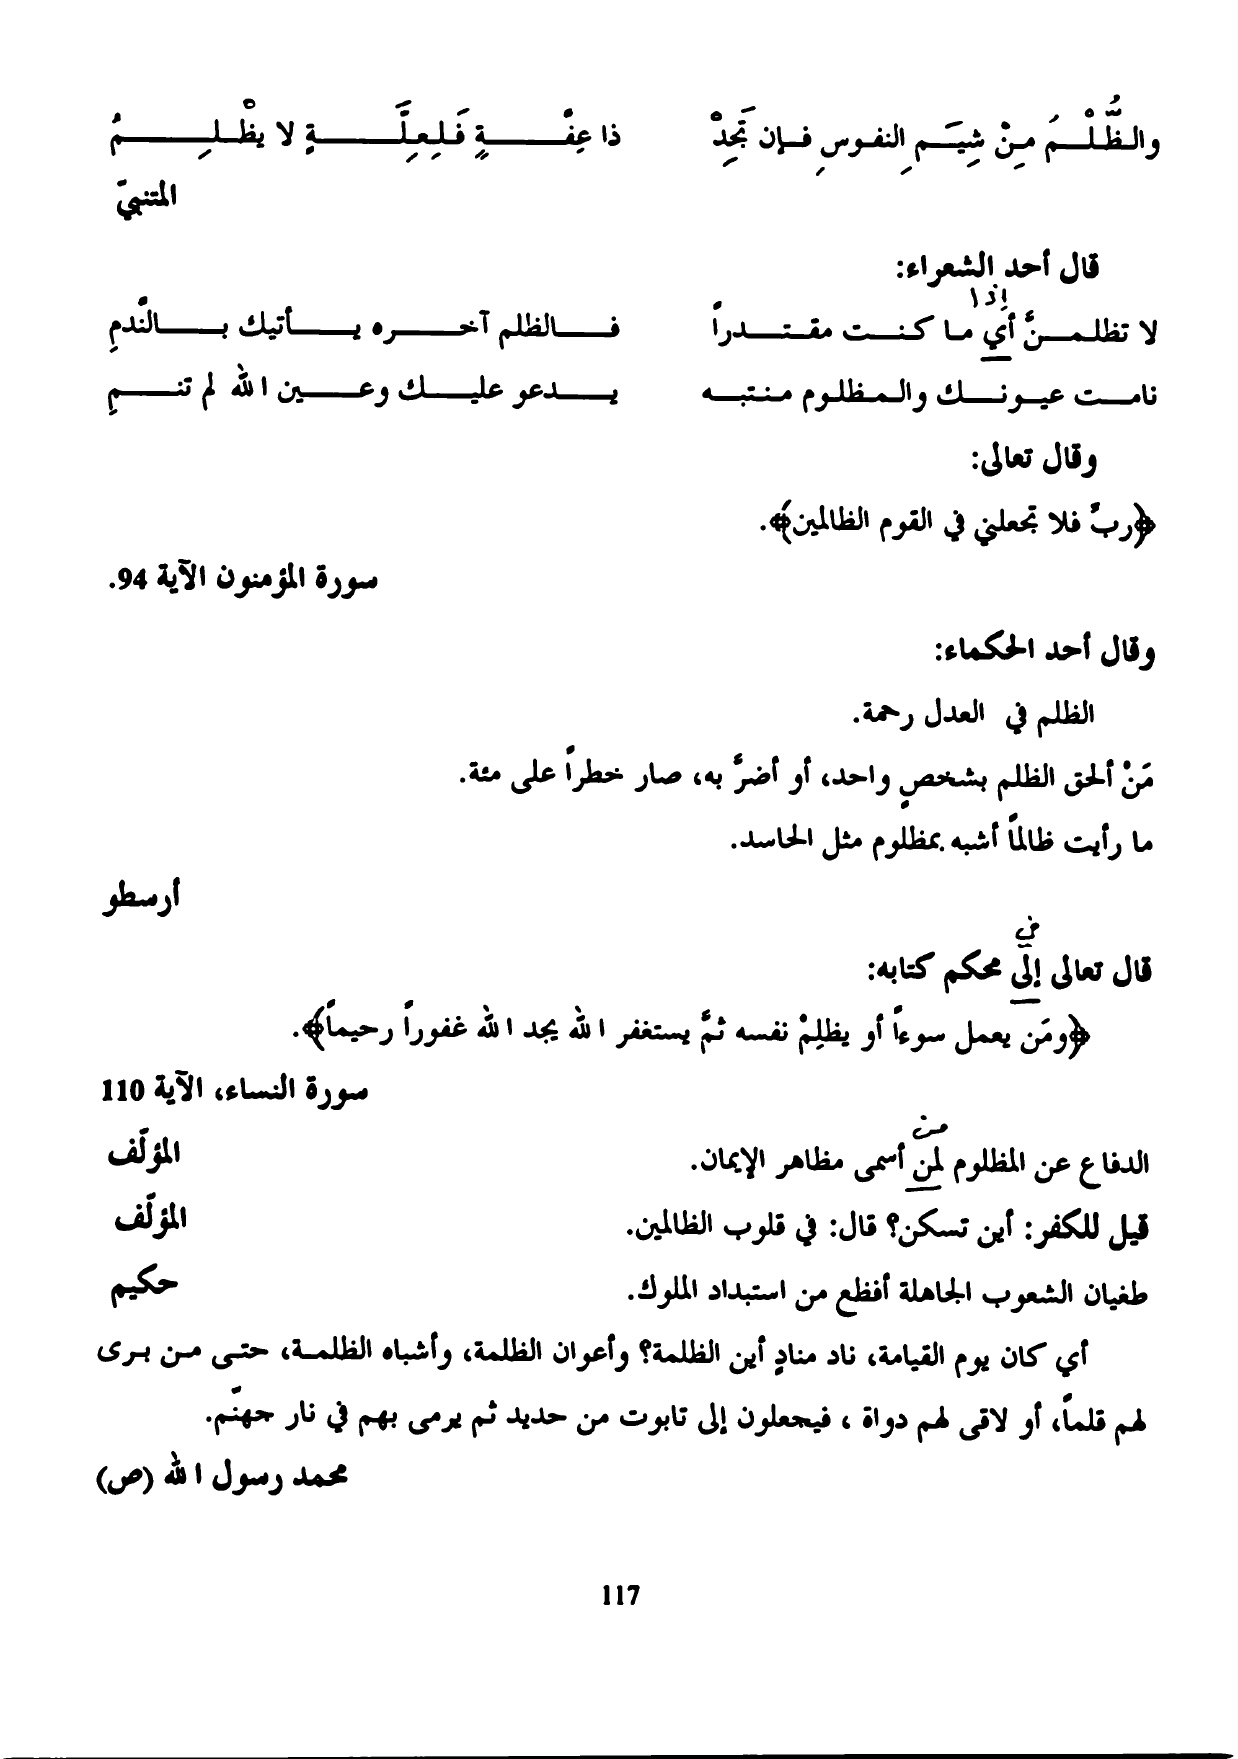 والظُّلْمَ مِنْ شِيَمِ النفوسِ فإن تَجِدْ ذا عِفّةٍ فَلِعِلَّةٍ لا يظْلِمُ
المتنبيّ
قال أحد الشعراء:
إذا
لا تظلمنَّ أي ما كنت مقتدراً فالظلم آخره يأتيك بالنّدمِ
نامت عيونك والمظلوم منتبه يدعو عليك وعين الله لم تنمِ
وقال تعالى:
﴿ربِّ فلا تجعلني في القوم الظالمين﴾.
سورة المؤمنون الآية 94.
وقال أحد الحكماء:
الظلم في العدل رحمة.
مَنْ ألحق الظلم بشخصٍ واحد، أو أضرَّ به، صار خطراً على مئة.
ما رأيت ظالماً أشبه بمظلوم مثل الحاسد.
أرسطو
في
قال تعالى إلى محكم كتابه:
﴿ومَن يعمل سوءاً أو يظلِمْ نفسه ثمَّ يستغفر الله يجد الله غفوراً رحيماً﴾.
سورة النساء، الآية 110
من
الدفاع عن المظلوم لمن أسمى مظاهر الإيمان. المؤلّف
قيل للكفر: أين تسكن؟ قال: في قلوب الظالمين. المؤلّف
طغيان الشعوب الجاهلة أفظع من استبداد الملوك. حكيم
أي كان يوم القيامة، ناد منادٍ أين الظلمة؟ وأعوان الظلمة، وأشباه الظلمة، حتى من برى
لهم قلماً، أو لاقى لهم دواة ، فيجعلون إلى تابوت من حديد ثم يرمى بهم في نار جهنّم.
محمد رسول الله (ص)
117